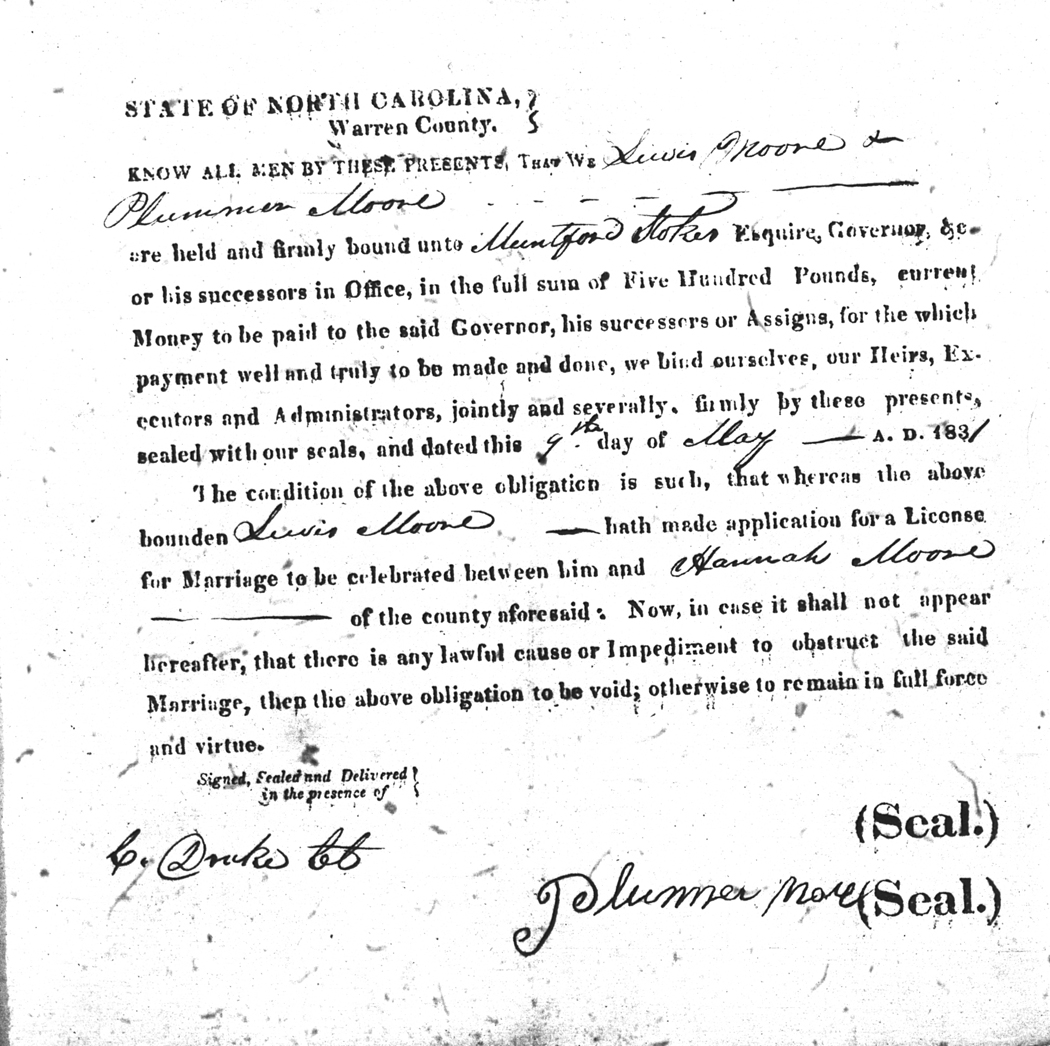 STATE OF NORTH CAROLINA,
Warren County.
KNOW ALL MEN BY THESE PRESENTS, THAT WE Lewis Moore &
Plummer Moore
are held and firmly bound unto Muntford Stokes Esquire, Governor, &c.
or his successors in Office, in the full sum of Five Hundred Pounds, current
Money to be paid to the said Governor, his successors or Assigns, for the which
payment well and truly to be made and done, we bind ourselves, our Heirs, Ex-
ecutors and Administrators, jointly and severally, firmly by these presents,
sealed with our seals, and dated this 9th day of May — A. D. 1831
The condition of the above obligation is such, that whereas the above
bounden Lewis Moore — hath made application for a License
for Marriage to be celebrated between him and Hannah Moore
— — of the county aforesaid: Now, in case it shall not appear
hereafter, that there is any lawful cause or Impediment to obstruct the said
Marriage, then the above obligation to be void; otherwise to remain in full force
and virtue.
Signed, Sealed and Delivered
in the presence of
(Seal.)
C. Drake CC
Plummer More (Seal.)